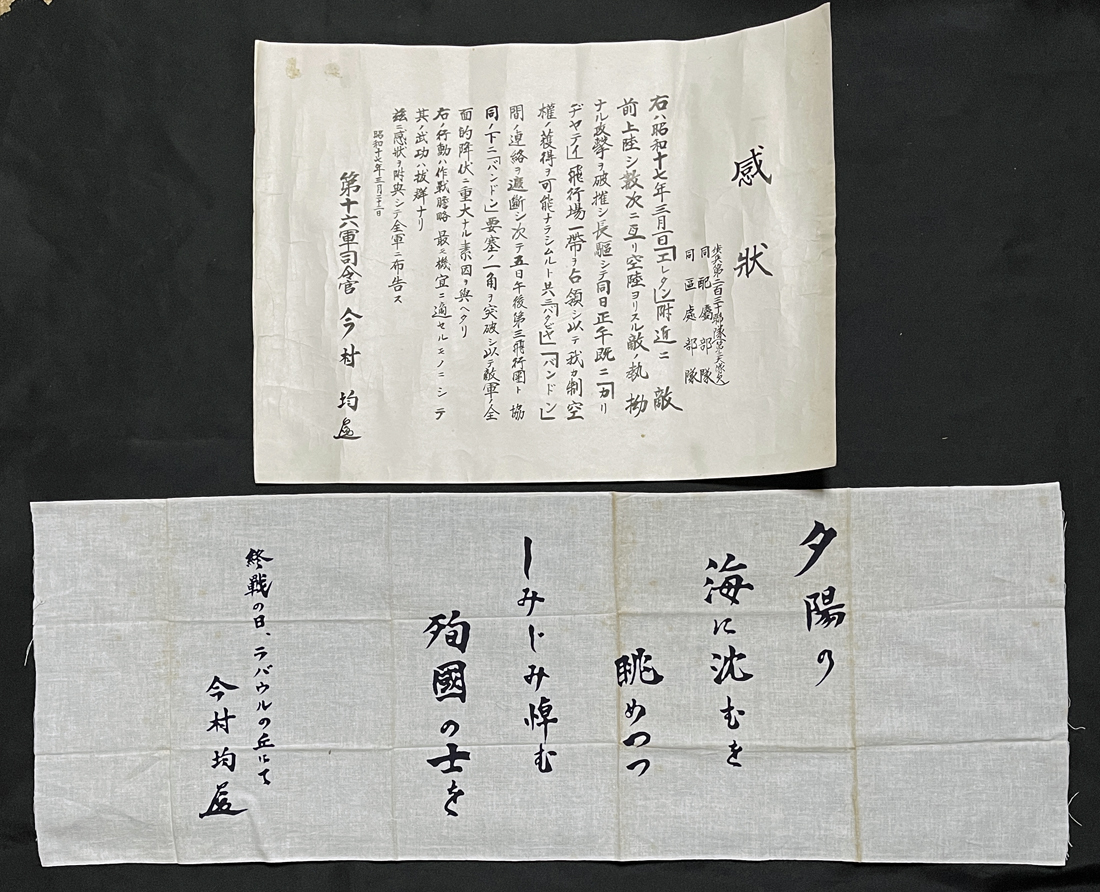 感狀
歩兵第二百三十聯隊
同配屬部隊
同區處部隊
右ハ昭和十七年三月一日「エレタン」附近ニ敵
前上陸シ数次ニ亙リ空陸ヨリスル敵ノ執拗
ナル攻撃ヲ破摧シ長驅シテ同日正午既ニ「カリ
ヂヤティ」飛行場一帶ヲ占領シ以テ我カ制空
權ノ獲得ヲ可能ナラシムルト共ニ「バタビヤ」「バンドン」
間ノ連絡ヲ遮断シ次テ五日午後第三飛行團ト協
同ノ下ニ「バンドン」要塞ノ一角ヲ突破シ以テ敵軍ノ全
面的降伏ニ重大ナル素因ヲ與ヘタリ
右ノ行動ハ作戰膽略最モ機宜ニ適セルモノニシテ
其ノ武功ハ拔群ナリ
茲ニ感狀ヲ附與シテ全軍ニ布告ス
昭和十七年三月二十二日
第十六軍司令官 今村均
夕陽の
海に沈むを
眺めつつ
しみじみ悼む
殉國の士を
終戦の日、ラバウルの丘にて
今村均